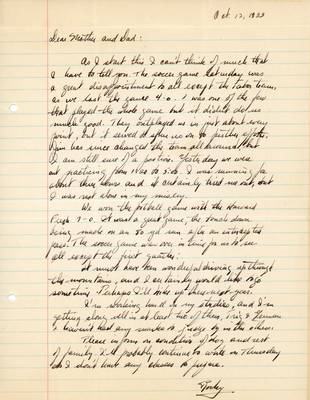 Oct. 12, 1923
Dear Mother and Dad:
As I start this I can't think of much that
I have to tell you. The soccer game Saturday was
a great disappointment to all except the Tabor team,
as we lost the game 4-0. I was one of the few
that played the whole game but it didn't do us
much good. They outplayed us in just about every
point, but it served to spur us on to further efforts.
has since changed the team all around, but
I am still sure of a position. Yesterday we were
out practising from to 5:00. I was running for
about three hours and it certainly tired me out, but
I was not alone in my misery.
We won the football game with the Harvard
7-0. It was a great game, the touch down
being made on an 80 yd run after an intercepted
pass. The soccer game was over in time for us to see
all except the first quarter.
It must have been wonderful driving up through
the mountains, and I certainly would like to do
something. Perhaps I'll wake up there next year.
I'm working hard in my studies, and I'm
getting along well in at least two of them, Trig & German
I haven't had any marks to judge by in the others.
Please inform on condition of dog and rest
of family. I'll probably continue to write on Thursday
as I don't have any classes to prepare.